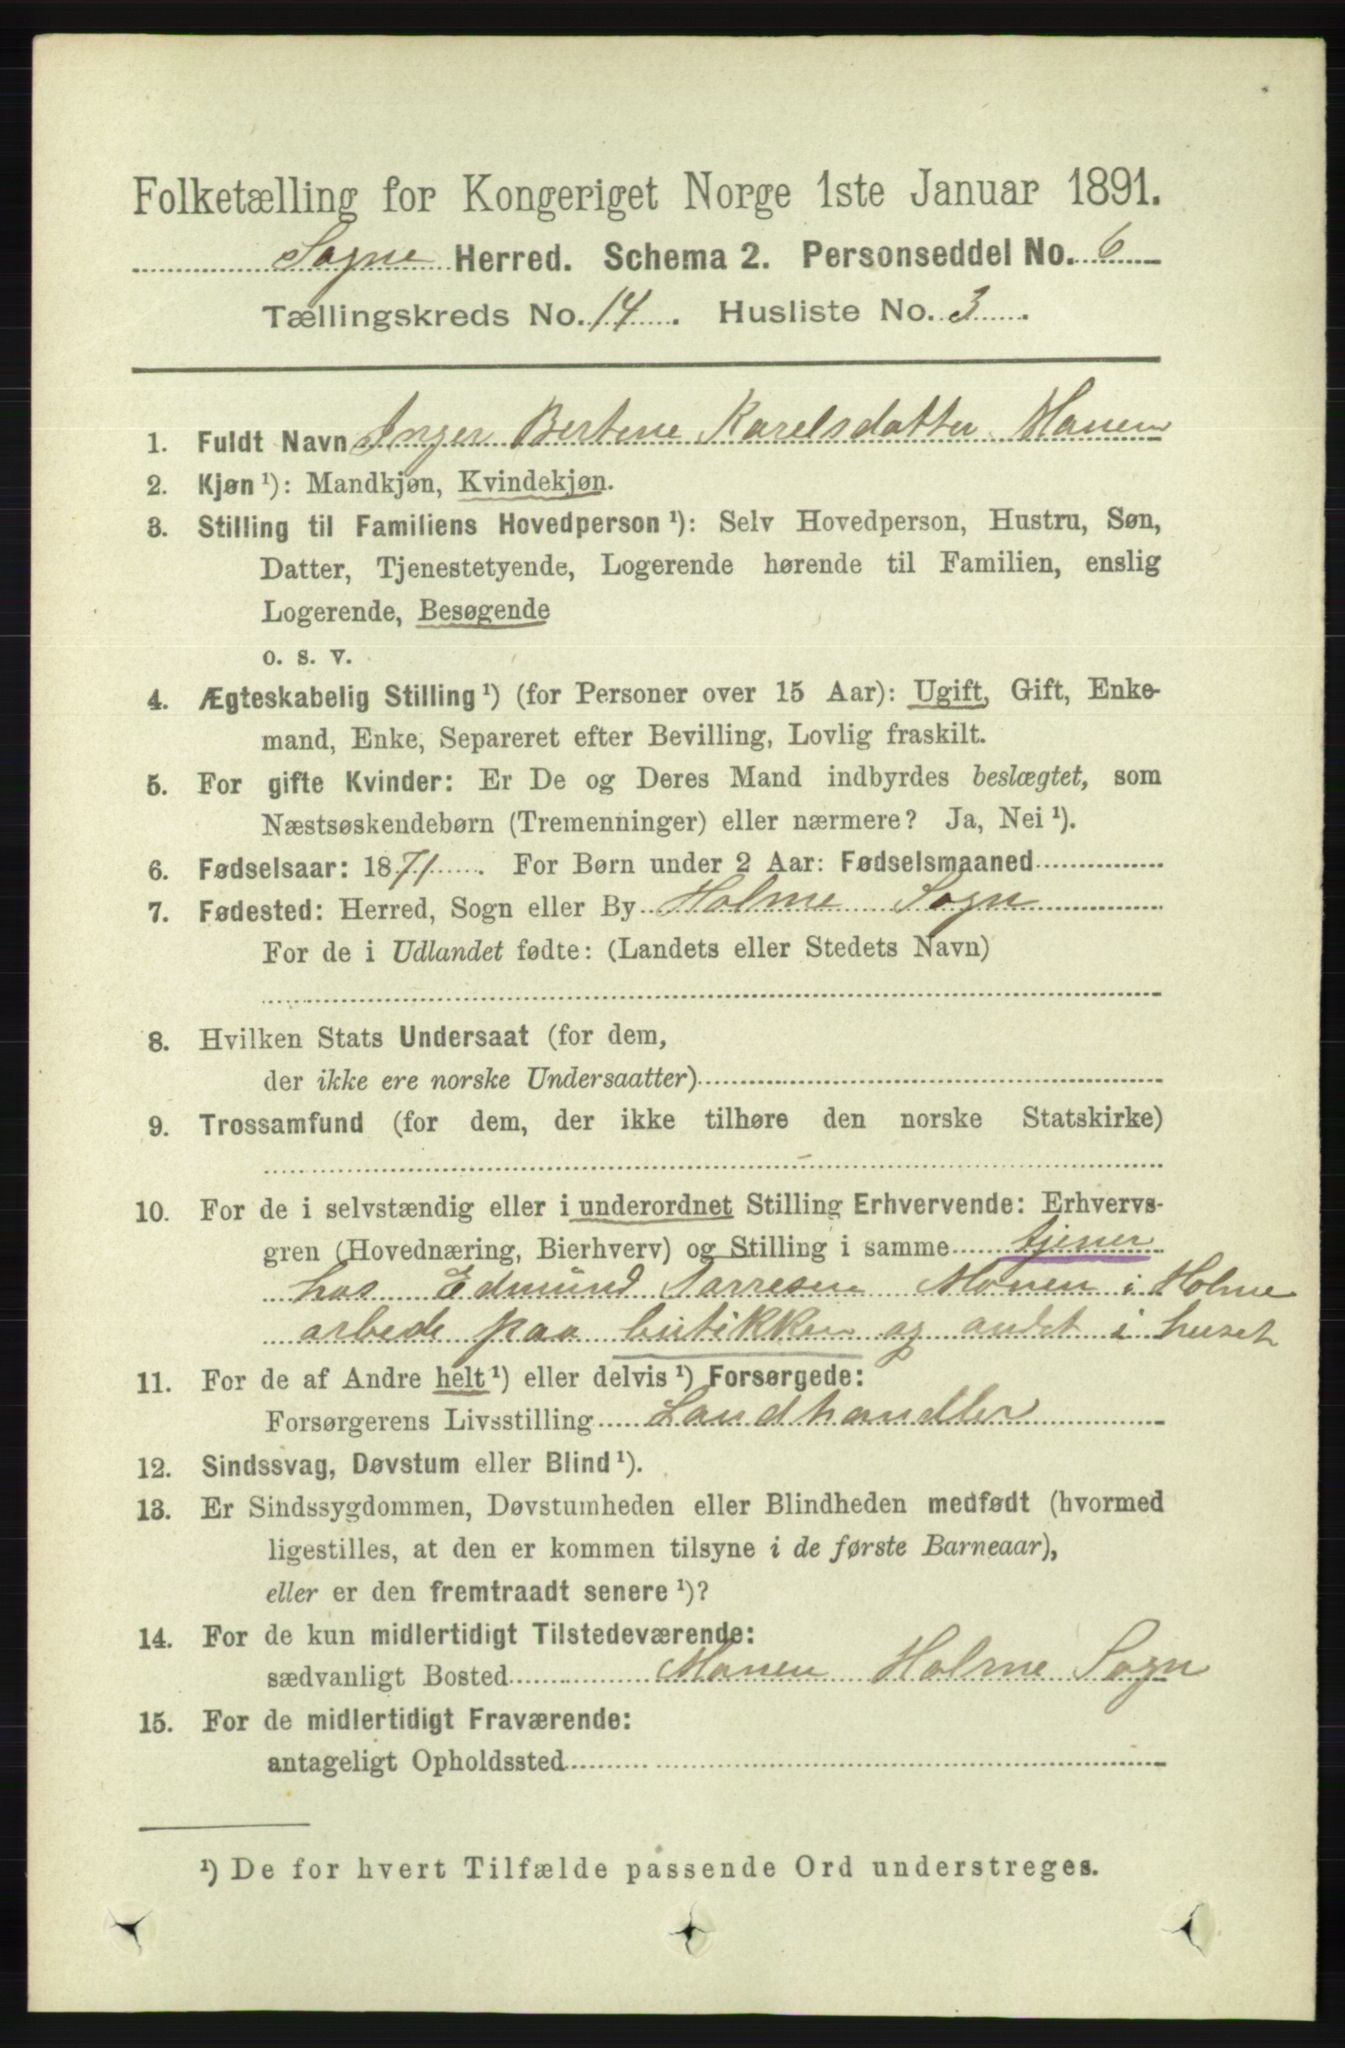 Folketælling for Kongeriget Norge 1ste Januar 1891.
Sogne Herred. Schema 2. Personseddel No. 6
Tællingskreds No. 14. Husliste No. 3.
1. Fuldt Navn Inger Bertine Karelsdatter Monen
2. Kjøn ¹): Mandkjøn, Kvindekjøn.
3. Stilling til Familiens Hovedperson ¹): Selv Hovedperson, Hustru, Søn,
Datter, Tjenestetyende, Logerende hørende til Familien, enslig
Logerende, Besøgende
o. s. v.
4. Ægteskabelig Stilling ¹) (for Personer over 15 Aar): Ugift, Gift, Enke-
mand, Enke, Separeret efter Bevilling, Lovlig fraskilt.
5. For gifte Kvinder: Er De og Deres Mand indbyrdes beslægtet, som
Næstsøskendebørn (Tremenninger) eller nærmere? Ja, Nei ¹).
6. Fødselsaar: 1871. For Børn under 2 Aar: Fødselsmaaned
7. Fødested: Herred, Sogn eller By Holme Sogn
For de i Udlandet fødte: (Landets eller Stedets Navn)
8. Hvilken Stats Undersaat (for dem,
der ikke ere norske Undersaatter)
9. Trossamfund (for dem, der ikke tilhøre den norske Statskirke)
10. For de i selvstændig eller i underordnet Stilling Erhvervende: Erhvervs-
gren (Hovednæring, Bierhverv) og Stilling i samme tjener
hos Edmund Monen i Holme
arbede paa butikken og andet i huset
11. For de af Andre helt ¹) eller delvis ¹) Forsørgede:
Forsørgerens Livsstilling Landhandler
12. Sindssvag, Døvstum eller Blind ¹).
13. Er Sindssygdommen, Døvstumheden eller Blindheden medfødt (hvormed
ligestilles, at den er kommen tilsyne i de første Barneaar),
eller er den fremtraadt senere ¹)?
14. For de kun midlertidigt Tilstedeværende:
sædvanligt Bosted Monen Holme Sogn
15. For de midlertidigt Fraværende:
antageligt Opholdssted
¹) De for hvert Tilfælde passende Ord understreges.